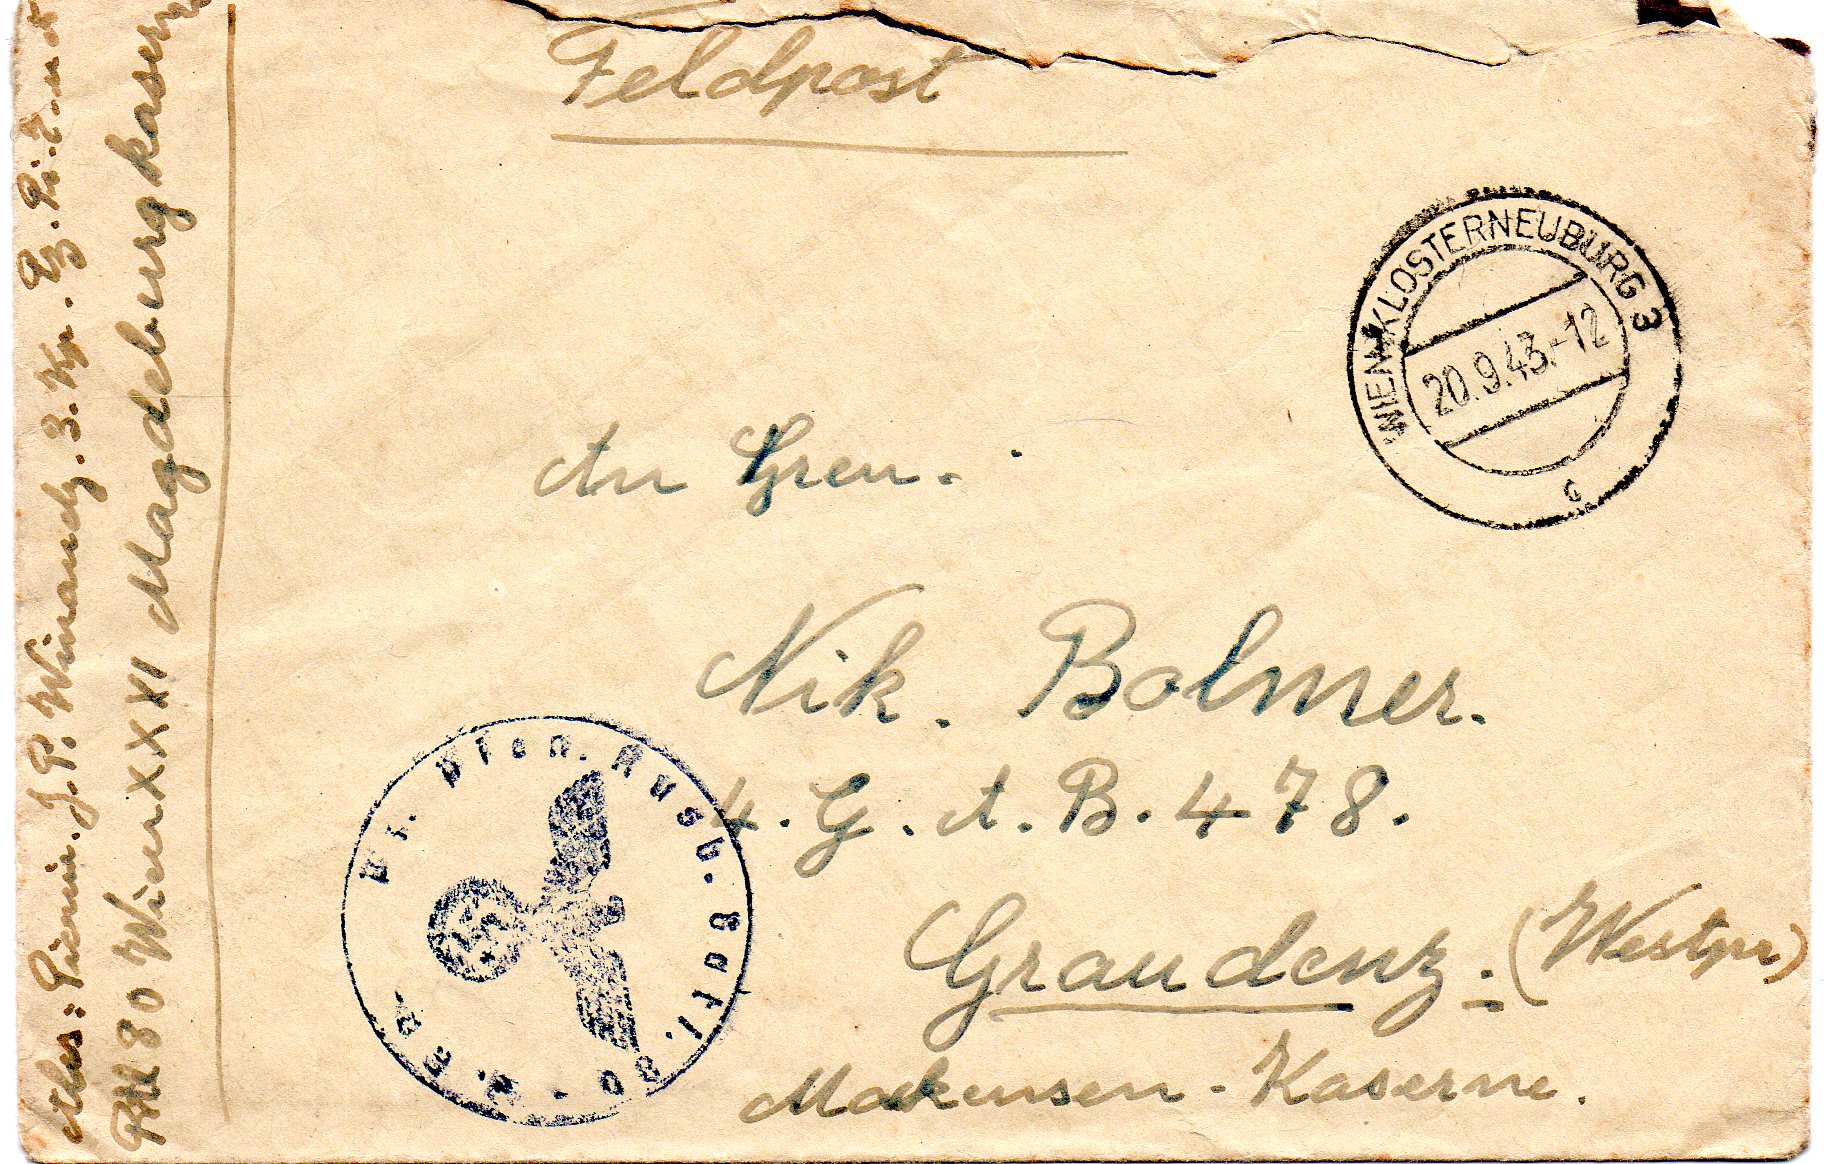 Feldpost
WIEN-KLOSTERNEUBURG 3
20.9.43.-12
c
An Gren.
Nik. Bolmer.
4. G. A. B. 478.
Graudenz. (Westpr)
Mackensen-Kaserne.
Pion. Ausb. Batl. 80
Abs: Pionier. J. P. Winandy. 3. Kp. Pz. Pi.
80 Wien XXXI Magdeburgkaserne